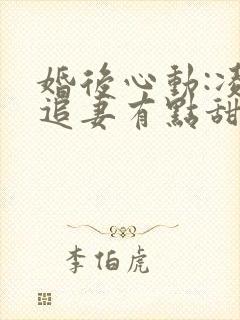 婚後心動:凌
追妻有點甜
李伯虎